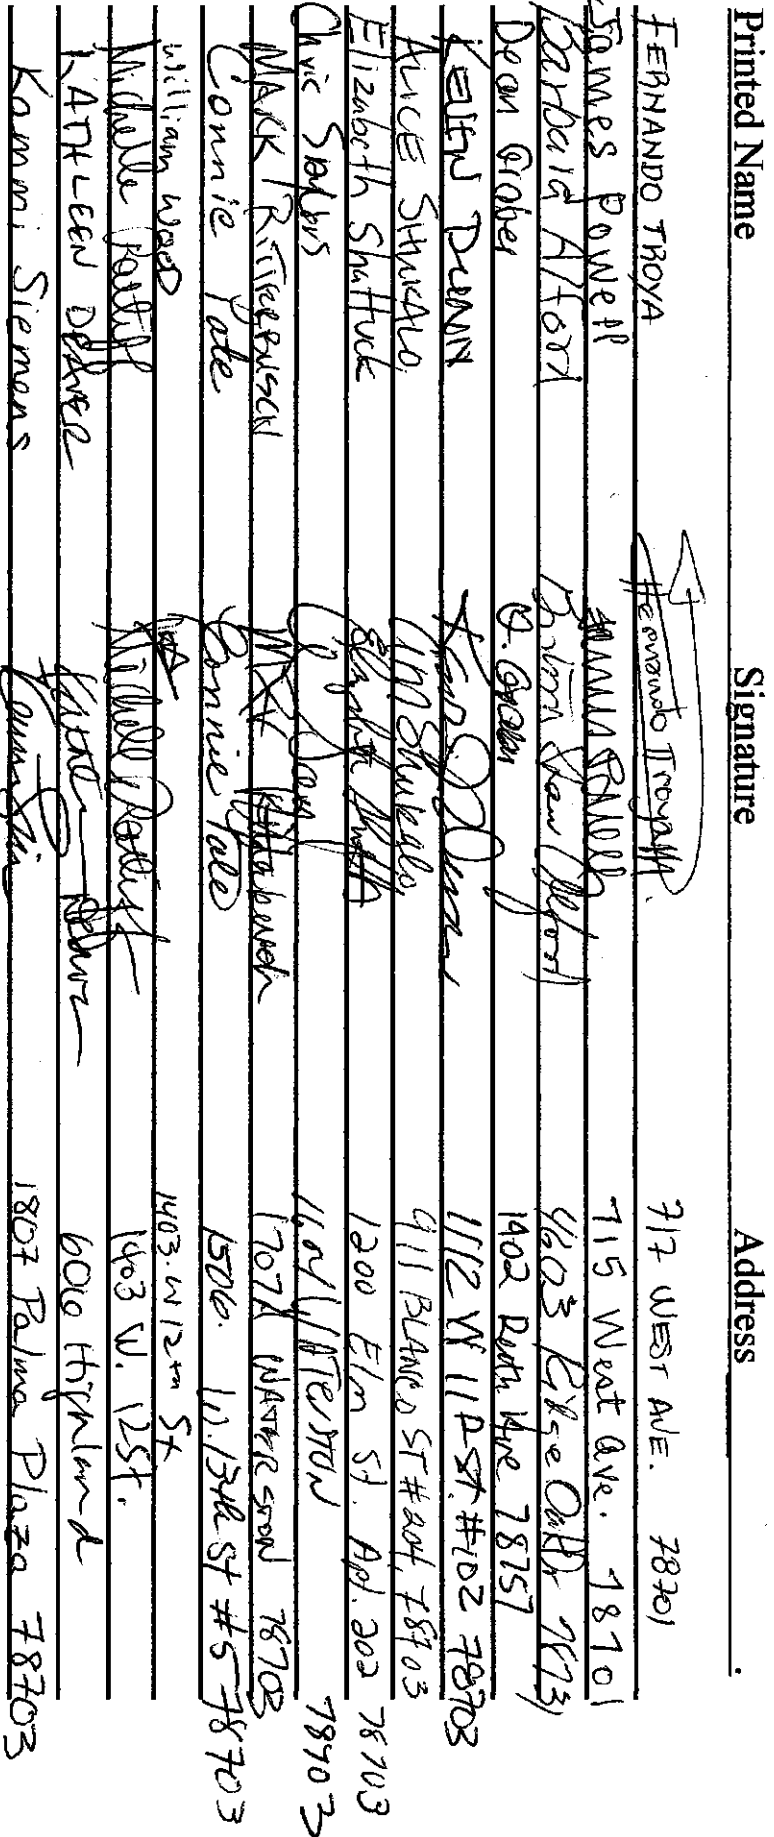 Printed Name Signature Address
FERNANDO TROYA Fernando Troya 717 WEST AVE. 78701
James Powell James Powell 715 West Ave. 78701
Barbara Alford Alford 4603 Dr 78731
Dean Graber D. Graber 1402 Ruth Ave 78757
KEVIN DUNN 1112 W 11th ST. #102 78703
ALICE SHUKALO AM Shukalo 911 BLANCO ST #204, 78703
Elizabeth Shattuck Elizabeth 1200 Elm St. Apt. 202 78703
Chris WATERSTON 78703
MARK RITTERBUSCH 1707A WATERSTON 78703
Connie Pate Connie Pate 1506. W. 13th St #5 78703
William WOOD 1403. W 12th St
Michelle Michelle 1403 W. 12 St.
KATHLEEN DEAVER 606 Highland
Kammi Siemens 1807 Palma Plaza 78703